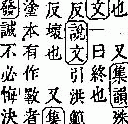 又集韻殊
文也一曰終也
反說文引洪範
反壞也又集
塗本有作斁者
發誠不必悔決